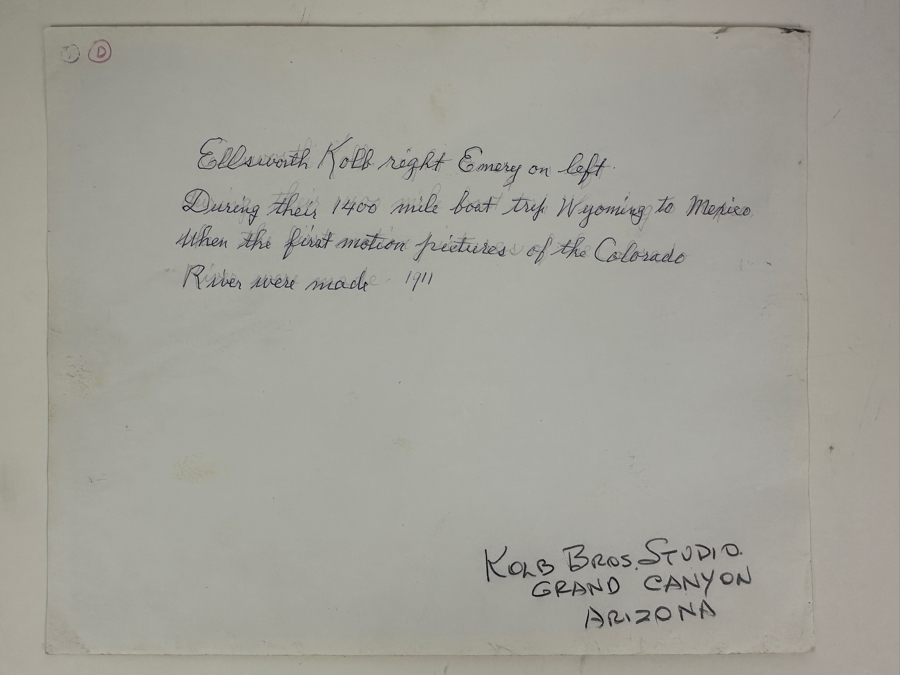 D
Ellsworth Kolb right Emery on left.
During their 1400 mile boat trip Wyoming to Mexico
When the first motion pictures of the Colorado
River were made 1911
KOLB BROS. STUDIO.
GRAND CANYON
ARIZONA